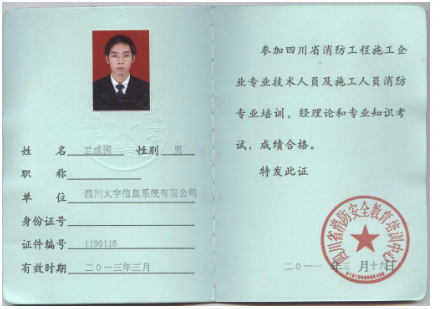 姓 名 兰成国 性别 男
职 称
单 位 四川大宇信息系统有限公司
身份证号
证件编号 1190116
有效时期 二0一三年三月
参加四川省消防工程施工企
业专业技术人员及施工人员消防
专业培训，经理论和专业知识考
试，成绩合格。
特发此证
四川省消防安全教育培训中心
二0一一年三月十六日